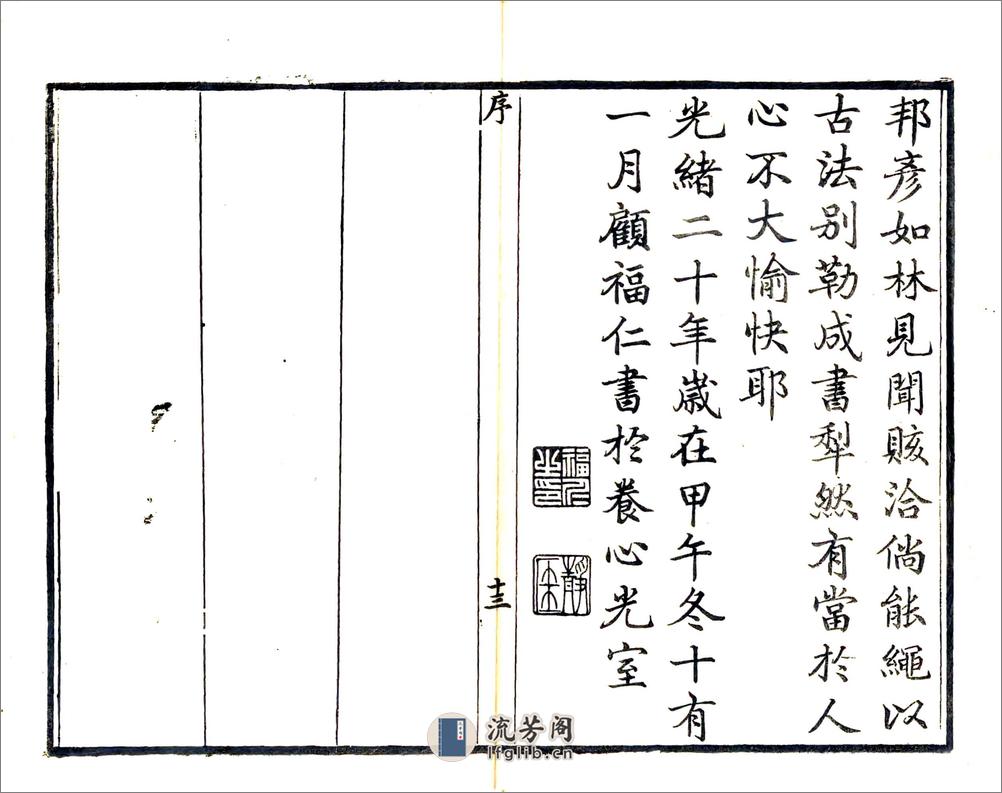 邦彥如林見聞賅洽倘能繩以
古法別勒成書犁然有當於人
心不大愉快耶
光緒二十年歲在甲午冬十有
一月顧福仁書於養心光室
序
十三
流芳阁
lfglib.cn